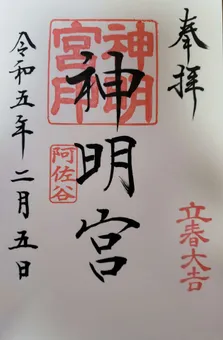 奉拝
立春大吉
神明宮
神明宮印
阿佐谷
令和五年二月五日